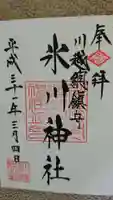 奉拝
川越総鎮守
氷川神社
平成三十一年三月四日